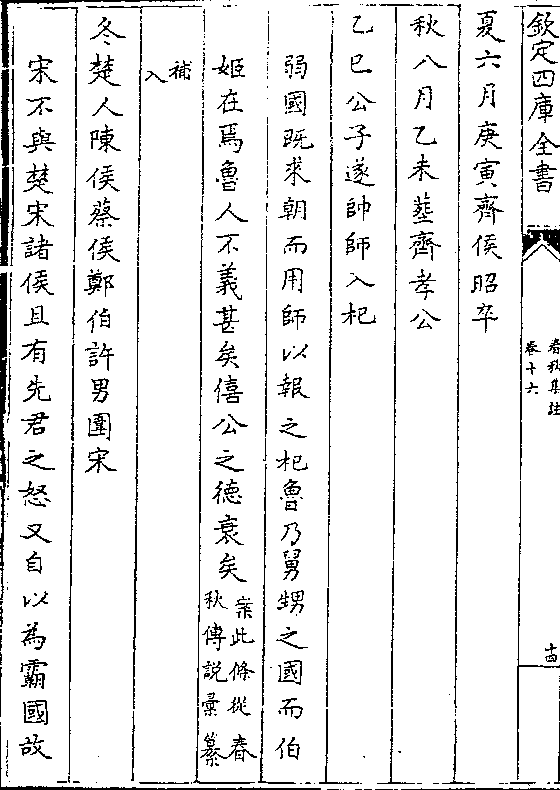 欽定四庫全書
春秋集註
卷十六
十四
夏六月庚寅齊侯昭卒
秋八月乙未葬齊孝公
乙巳公子遂帥師入杞
弱國既來朝而用師以報之杞魯乃舅甥之國而伯
姬在焉魯人不義甚矣僖公之德衰矣案此條從春
秋傳說彙纂
補
入
冬楚人陳侯蔡侯鄭伯許男圍宋
宋不與楚宋諸侯且有先君之怒又自以為霸國故